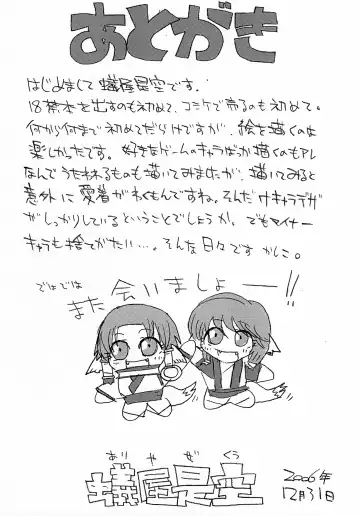 あとがき
はじめまして蟻屋星空です。
18禁本を出すのも初めて、コミケで売るのも初めて。
何から何まで初めてだらけですが、絵を描くのは
楽しかったです。好きなゲームのキャラばっか描くのもアレ
なんでうたわれるものも描いてみましたが、描いてみると
意外に愛着がわくもんですね。そんだけキャラデザ
がしっかりしているということでしょうか。でもマイナー
キャラも捨てがたい…。そんな日々です かしこ。
ではでは
また 会いましょー!!
ありやぜくう
蟻屋星空
2006年
12月31日